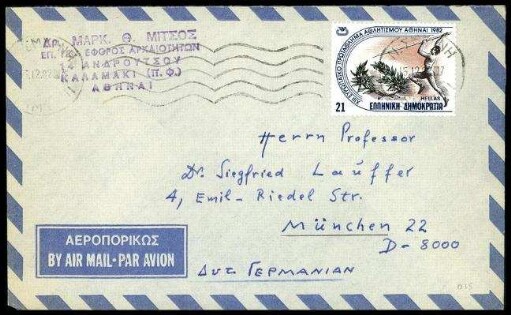 Δρ. ΜΑΡΚ. Θ. ΜΙΤΣΟΣ
ΕΠ. ΕΦΟΡΟΣ ΑΡΧΑΙΟΤΗΤΩΝ
ΑΝΔΡΟΥΤΣΟΥ
ΚΑΛΑΜΑΚΙ (Π.Φ.)
ΑΘΗΝΑΙ
ΑΘΛΗΤΙΣΜΟΥ ΑΘΗΝΑΙ 1982
HELLAS
21 ΕΛΛΗΝΙΚΗ ΔΗΜΟΚΡΑΤΙΑ
Herrn Professor
Dr. Siegfried Lauffer
4, Emil-Riedel Str.
München 22
D-8000
Δυτ. ΓΕΡΜΑΝΙΑΝ
ΑΕΡΟΠΟΡΙΚΩΣ
BY AIR MAIL·PAR AVION